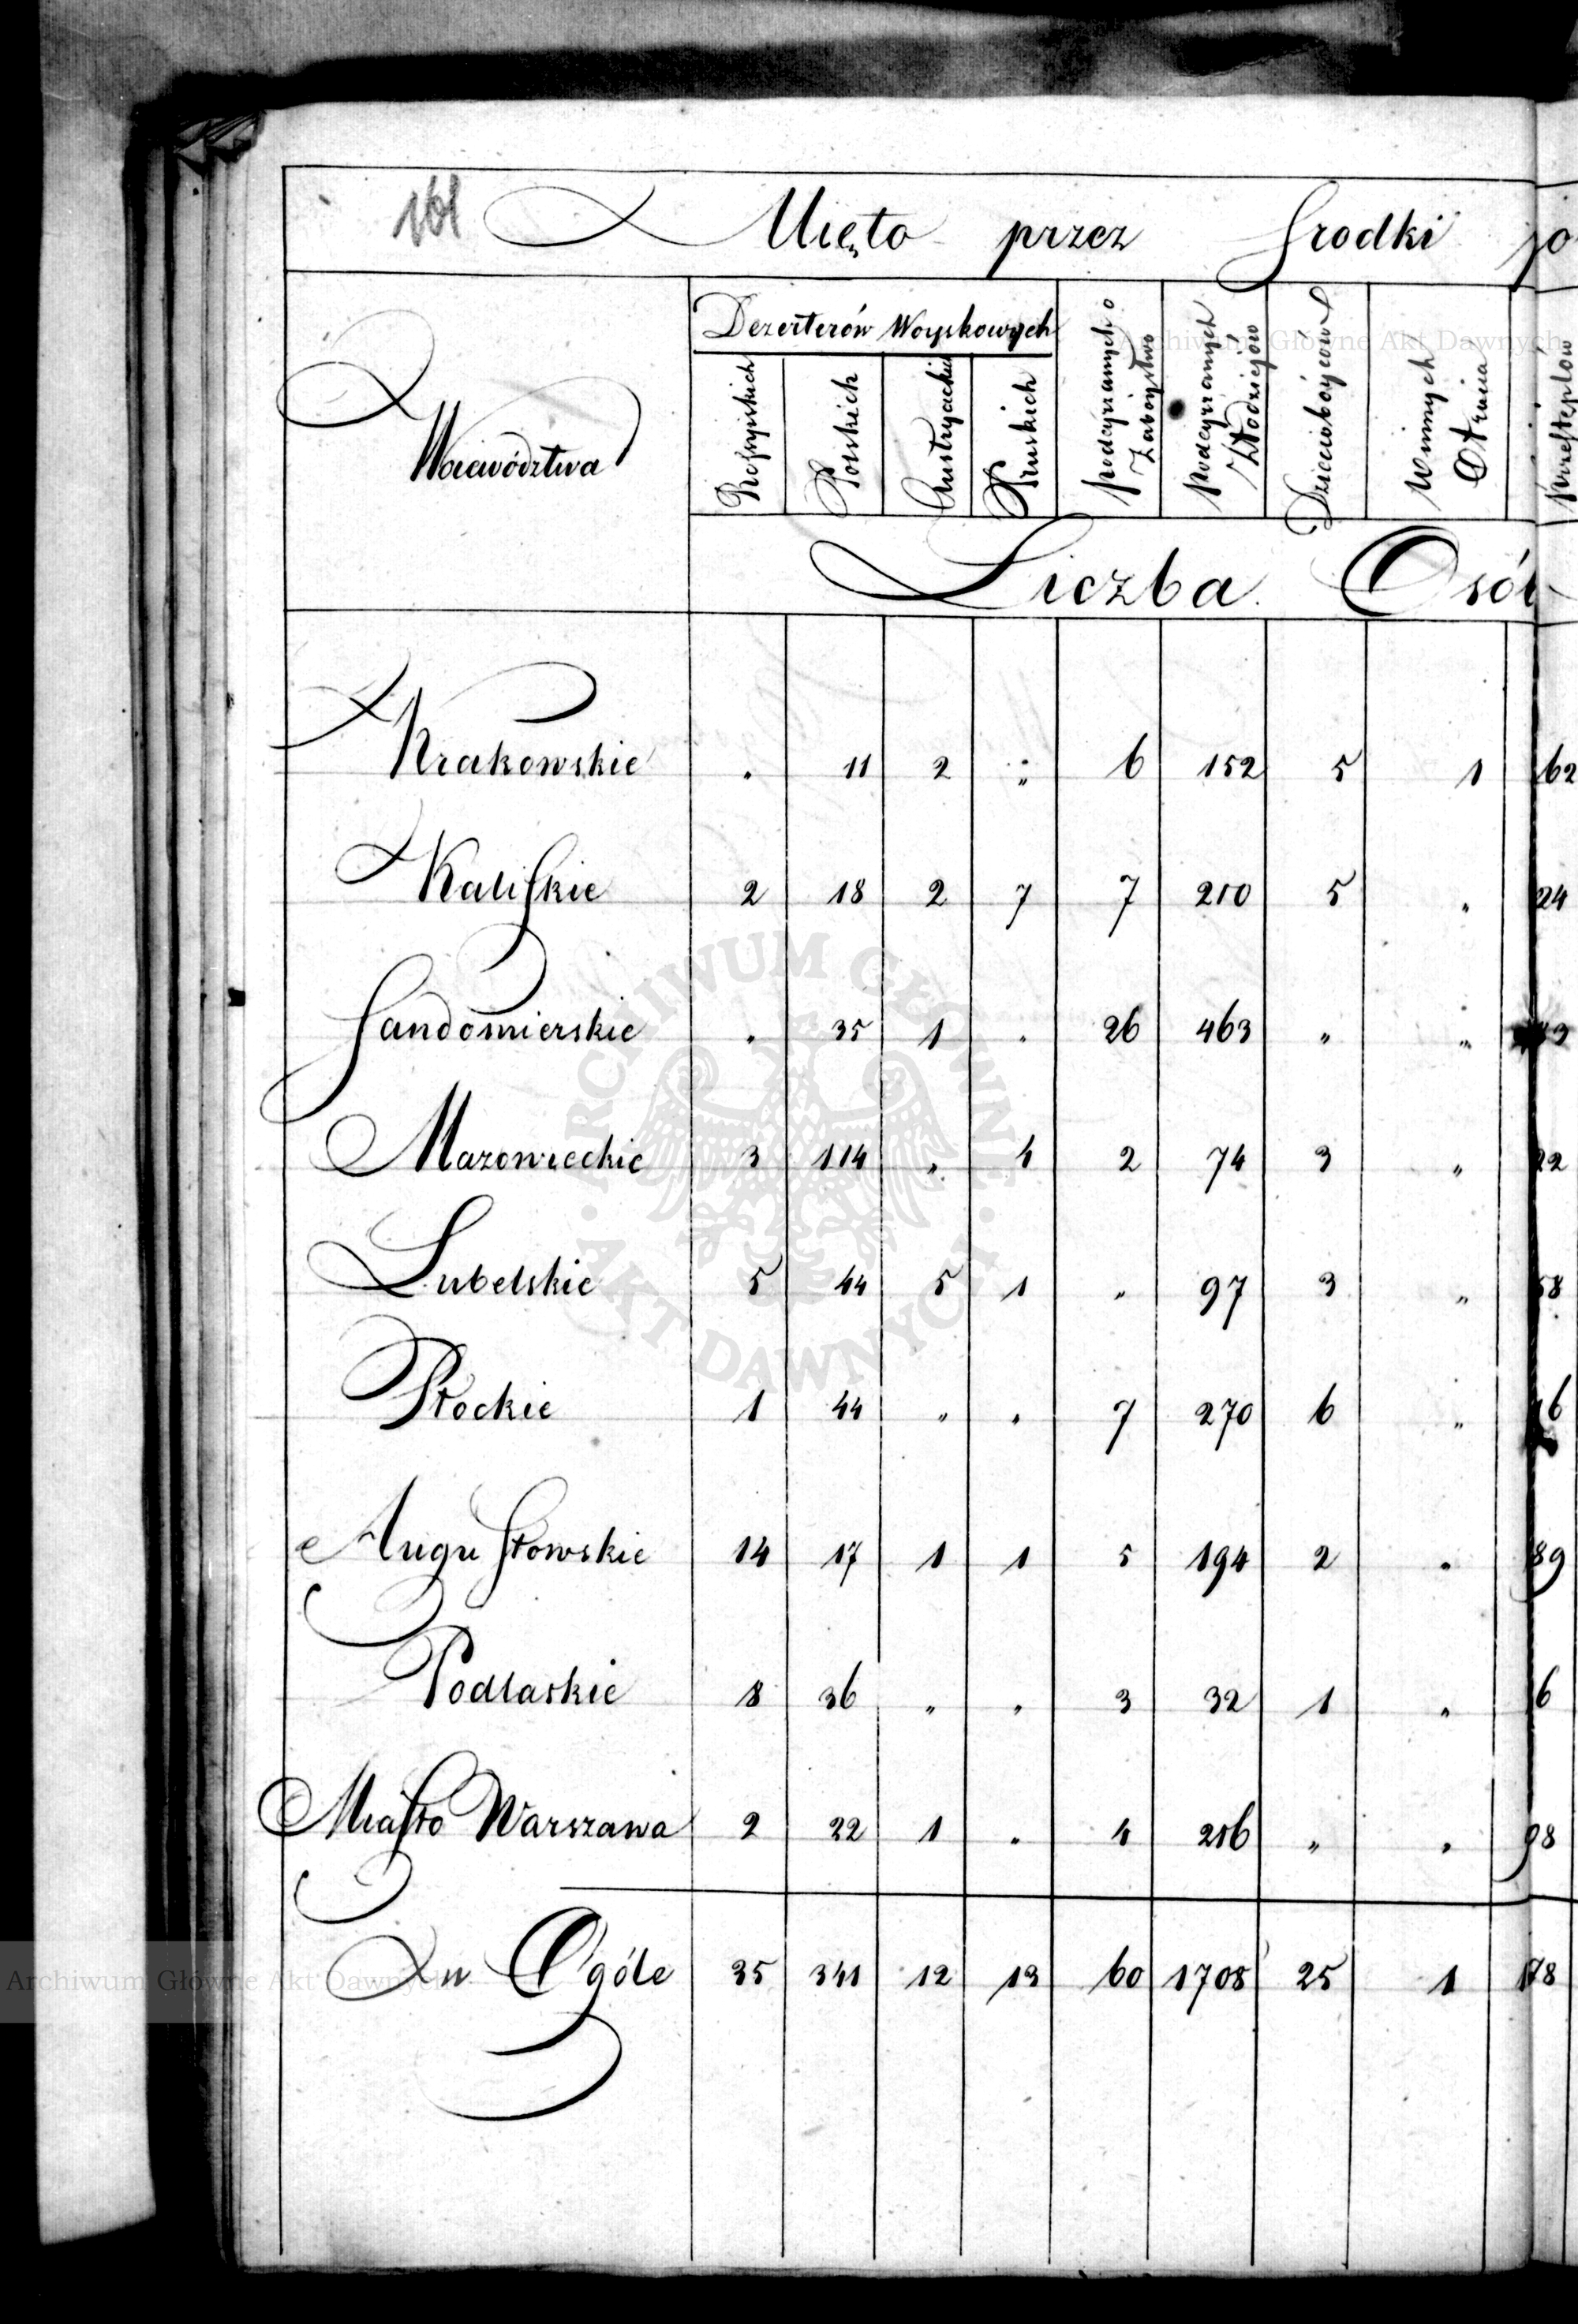 161
Ujęto przez Srodki jo
Woiewództwa
Dezerterów Woyskowych
Rossyiskich
Polskich
Austryackich
Pruskich
podeyrzanych o
Zaboystwo
podeyrzanych
Złodziejów
Dzieciobóyców
Winnych
Otrucia
przestępców
Liczba Osób
Krakowskie . 11 2 " 6 152 5 1 62
Kaliskie 2 18 2 7 7 210 5 . 24
Sandomierskie . 35 1 . 26 463 " "
Mazowieckie 3 114 " 4 2 74 3 " 22
Lubelskie 5 44 5 1 " 97 3 " 58
Płockie 1 44 " . 7 270 6 " 16
Augustowskie 14 17 1 1 5 194 2 . 89
Podlaskie 8 36 " " 3 32 1 " 6
Miasto Warszawa 2 22 1 . 4 216 " . 98
w Ogóle 35 341 12 13 60 1708 25 1
ARCHIWUM GŁÓWNE AKT DAWNYCH
Archiwum Główne Akt Dawnych
Archiwum Główne Akt Dawnych